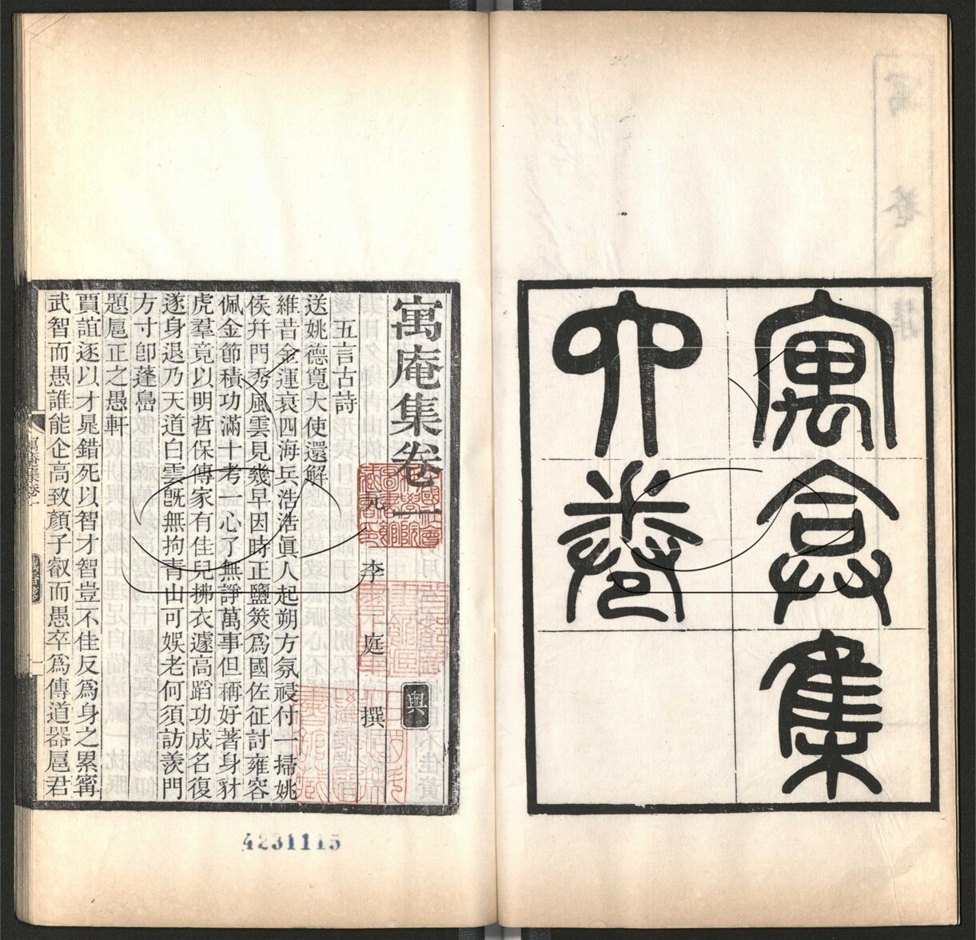 寓庵集
六卷
寓庵集卷一
元 李 庭 撰
五言古詩
送姚德寬大使還解
維昔金運衰四海兵浩浩眞人起朔方氛祲付一掃姚
侯幷門秀風雲見幾早因時正鹽筴爲國佐征討雍容
佩金節積功滿十考一心了無諍萬事但稱好著身豺
虎羣竟以明哲保傳家有佳兒拂衣遽高蹈功成名復
遂身退乃天道白雲旣無拘靑山可娛老何須訪羨門
方寸卽蓬島
題扈正之愚軒
賈誼逐以才鼂錯死以智才智豈不佳反爲身之累甯
武智而愚誰能企高致顏子叡而愚卒爲傳道器扈君
寓庵集卷一
一
輿
4231115